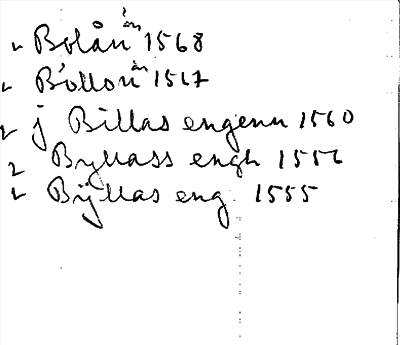 Bolån ån 1568
Bollon ån 1567
j Billas engenn 1560
Byllass engh 1556
Bÿllas eng. 1555